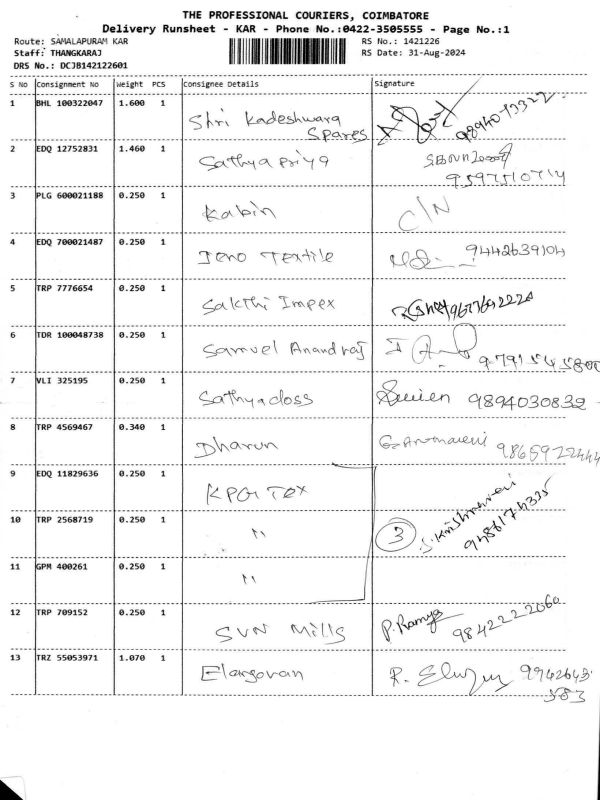 THE PROFESSIONAL COURIERS, COIMBATORE
Delivery Runsheet - KAR - Phone No.:0422-3505555 - Page No.:1
Route: SAMALAPURAM KAR RS No.: 1421226
Staff: THANGKARAJ RS Date: 31-Aug-2024
DRS No.: DCJB142122601
S No Consignment No Weight PCS Consignee Details Signature
1 BHL 100322047 1.600 1 Shri Kadeshwara
Spares
2 EDQ 12752831 1.460 1 Sathya priya
9597510714
3 PLG 600021188 0.250 1 Kabin C/N
4 EDQ 700021487 0.250 1 Jeno Textile 9442639104
5 TRP 7776654 0.250 1 Sakthi Impex
6 TDR 100048738 0.250 1 Samuel Anandraj
7 VLI 325195 0.250 1 Sathyadoss 9894030832
8 TRP 4569467 0.340 1 Dharun 9865922444
9 EDQ 11829636 0.250 1 KPG Tex
10 TRP 2568719 0.250 1 " 3 9486174335
11 GPM 400261 0.250 1 "
12 TRP 709152 0.250 1 SVN Mills P. Ramya 9842222060
13 TRZ 55053971 1.070 1 Elangovan R. 9942643
583